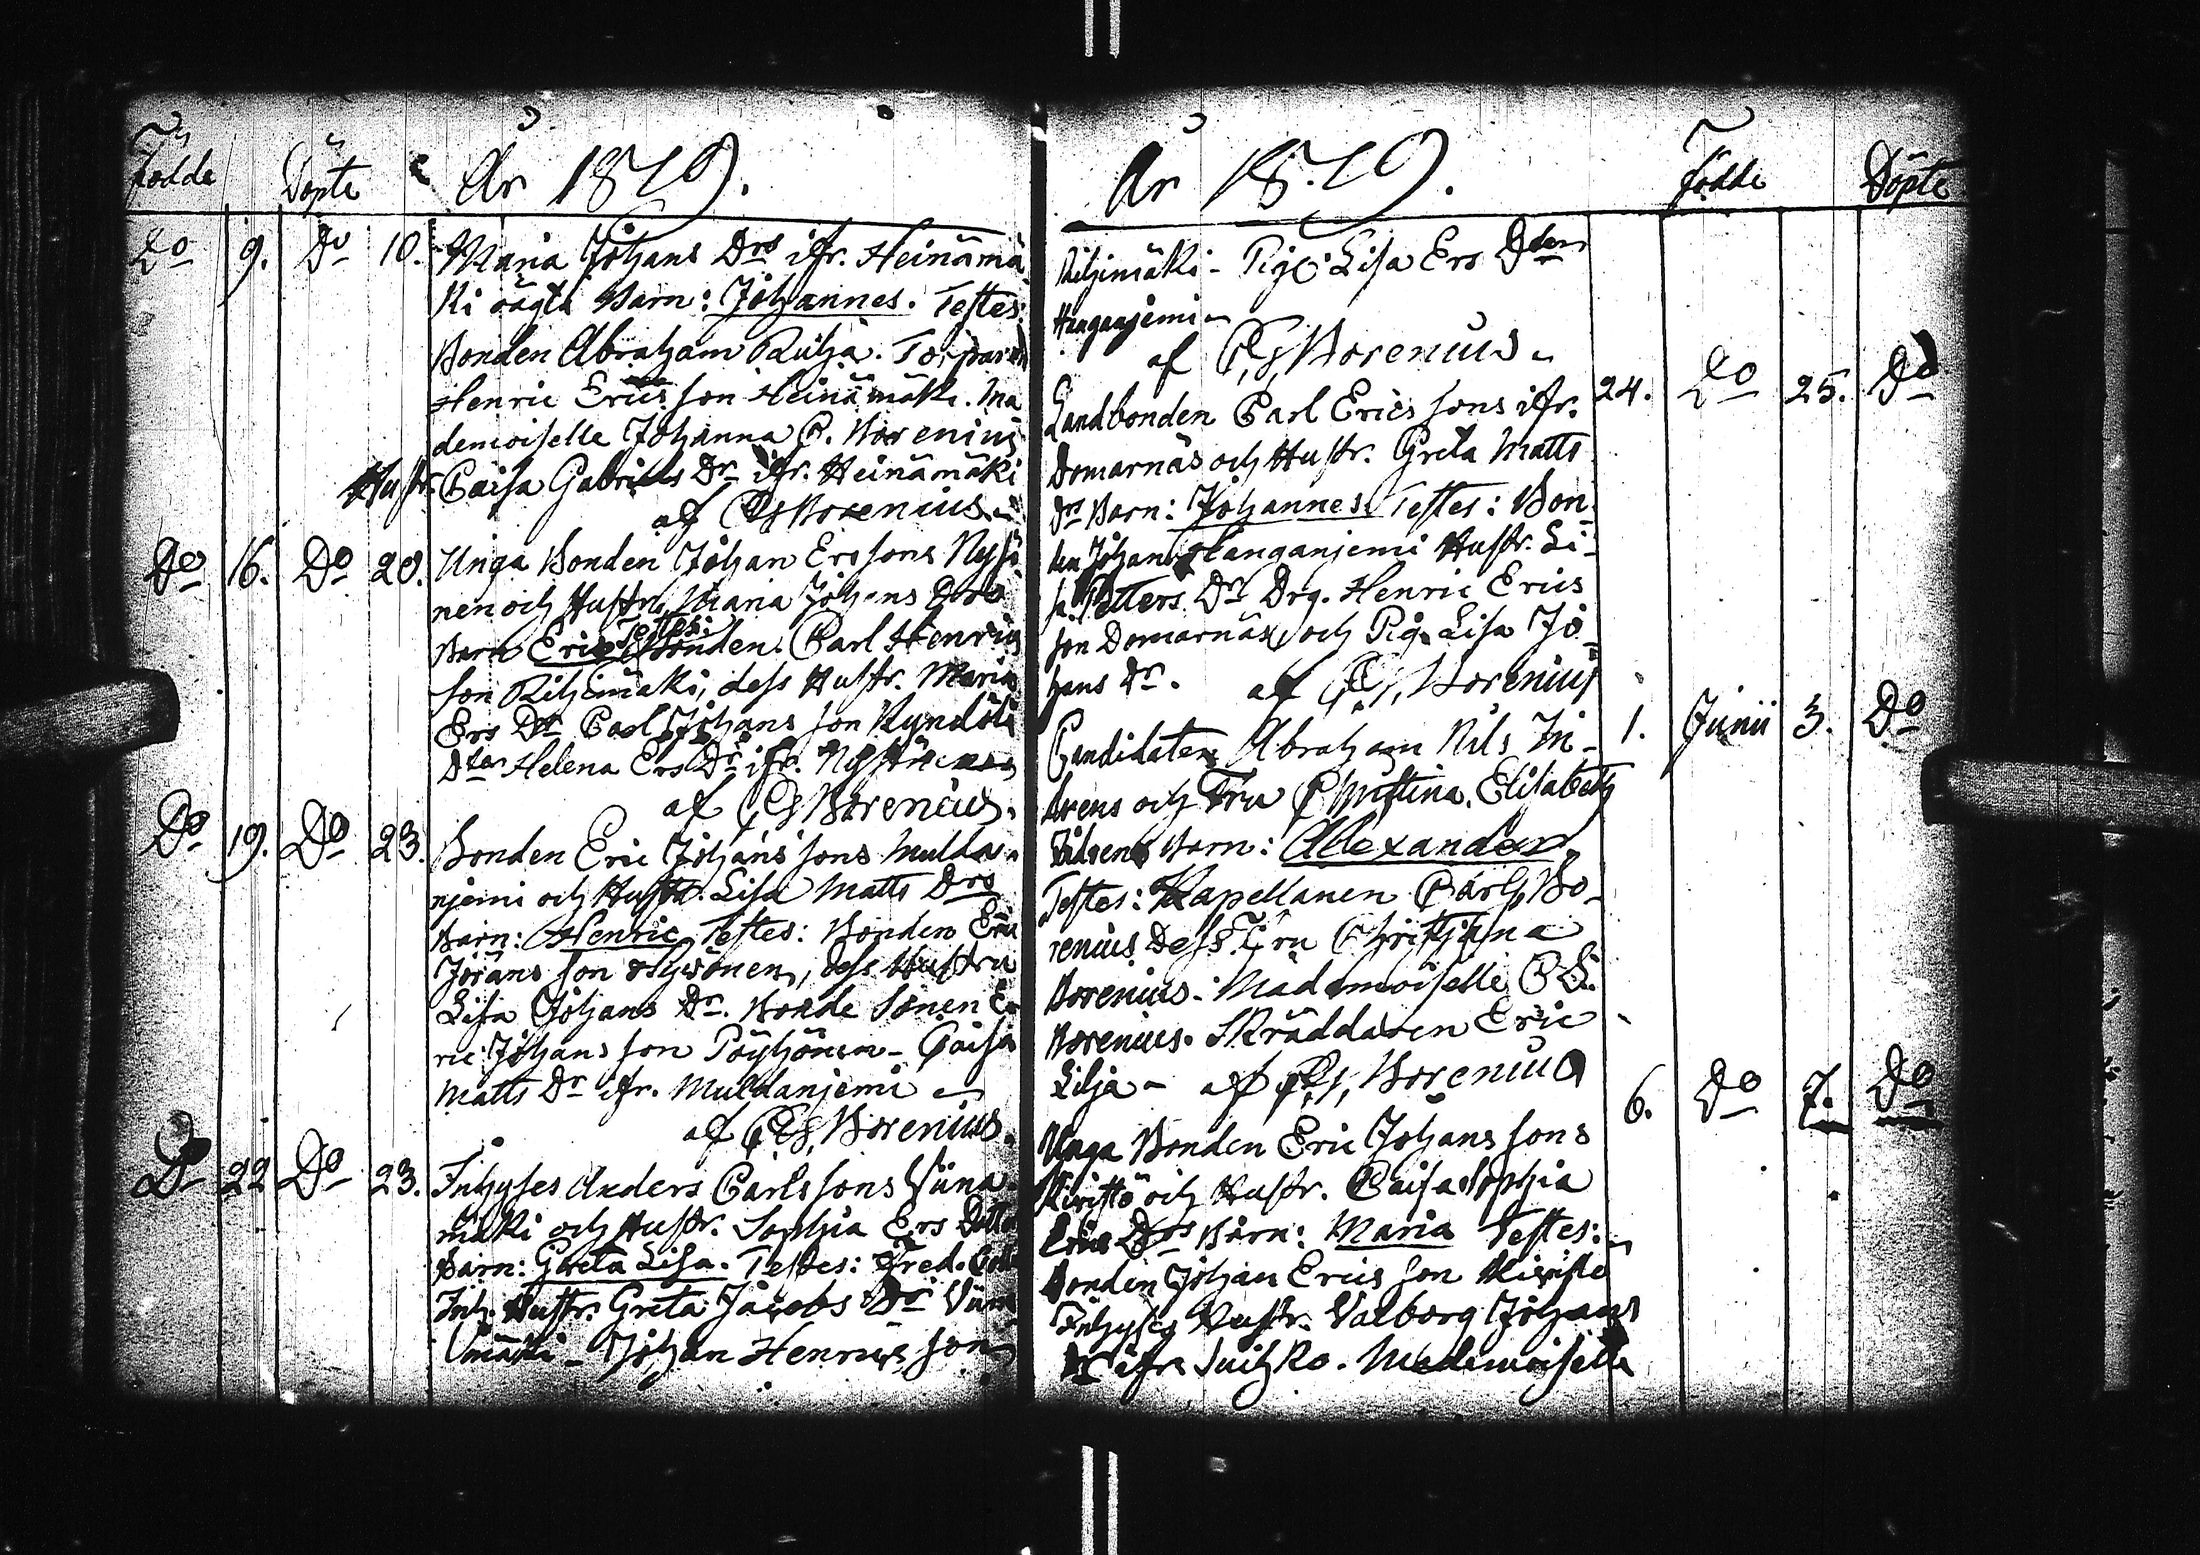 Födde Döpte År 1819.
Do 9. Do 10. Maria Johans Drs ifr. Heinämä
ki oägta Barn: Johannes. Testes:
Bonden Abraham Riitja. Torparen
Henric Erics son Heinämäki. Ma
demoiselle Johanna C. Borenius
Hustr. Caisa Gabriels Dr ifr. Heinämäki
af C. G. Borenius.
Do 16. Do 20. Unga Bonden Johan Ers sons
nen och Hustru Maria Johans Drs
Barn Eric Testes: Bonden Carl Henrics
son Riihimäki, dess Hustr. Maria
Ers Dr Carl Johans son
Dter Helena Ers Dr ifr.
af C. G. Borenius.
Do 19. Do 23. Bonden Eric Johans sons Mulda
njemi och Hustr. Lisa Matts Drs
Barn: Henric Testes: Bonden Eric
Jörans son dess Hustru
Lisa Johans Dr. Bonde Sonen E
ric Johans son Pöyhönen - Caisa
Matts Dr ifr. Muldanjemi
af C. G. Borenius.
Do 22 Do 23. Inhyses Anders Carls sons Viina
mäki och Hustr. Sophia Ers Dotter
Barn: Greta Lisa. Testes: Fred.
Inh. Hustr. Greta Jacobs Dr
Johan Henrics son
År 1819. Födde Döpte
Riihimäki - Pig. Lisa Ers Dter
Haaganjemi
af C. G. Borenius
Landbonden Carl Erics sons ifr. 24. Do 25. Do
Domarnäs och Hustr. Greta Matts
Drs Barn: Johannes. Testes: Bon
den Johan Hanganjemi Hustr. Li
sa Petters Dr Drg. Henric Erics
son Domarnäs och Pig. Lisa Jo
hans Dr. af C. G. Borenius
Candidaten Abraham Nils In- 1. Junii 3. Do
drens och Fru Christina Elisabeth
Barn: Alexander.
Testes: Kapellanen Carl Bo
renius Dess Fru Christina
Borenius. Mademoiselle C
Borenius. Skräddaren Eric
Lilja - af C. G. Borenius
Unga Bonden Eric Johans sons 6. Do 7. Do
och Hustr. Caisa Sophia
Erics Drs Barn: Maria Testes:
Bonden Johan Erics son
Inhyses Hustr. Valborg Johans
Dr ifr. Mademoiselle